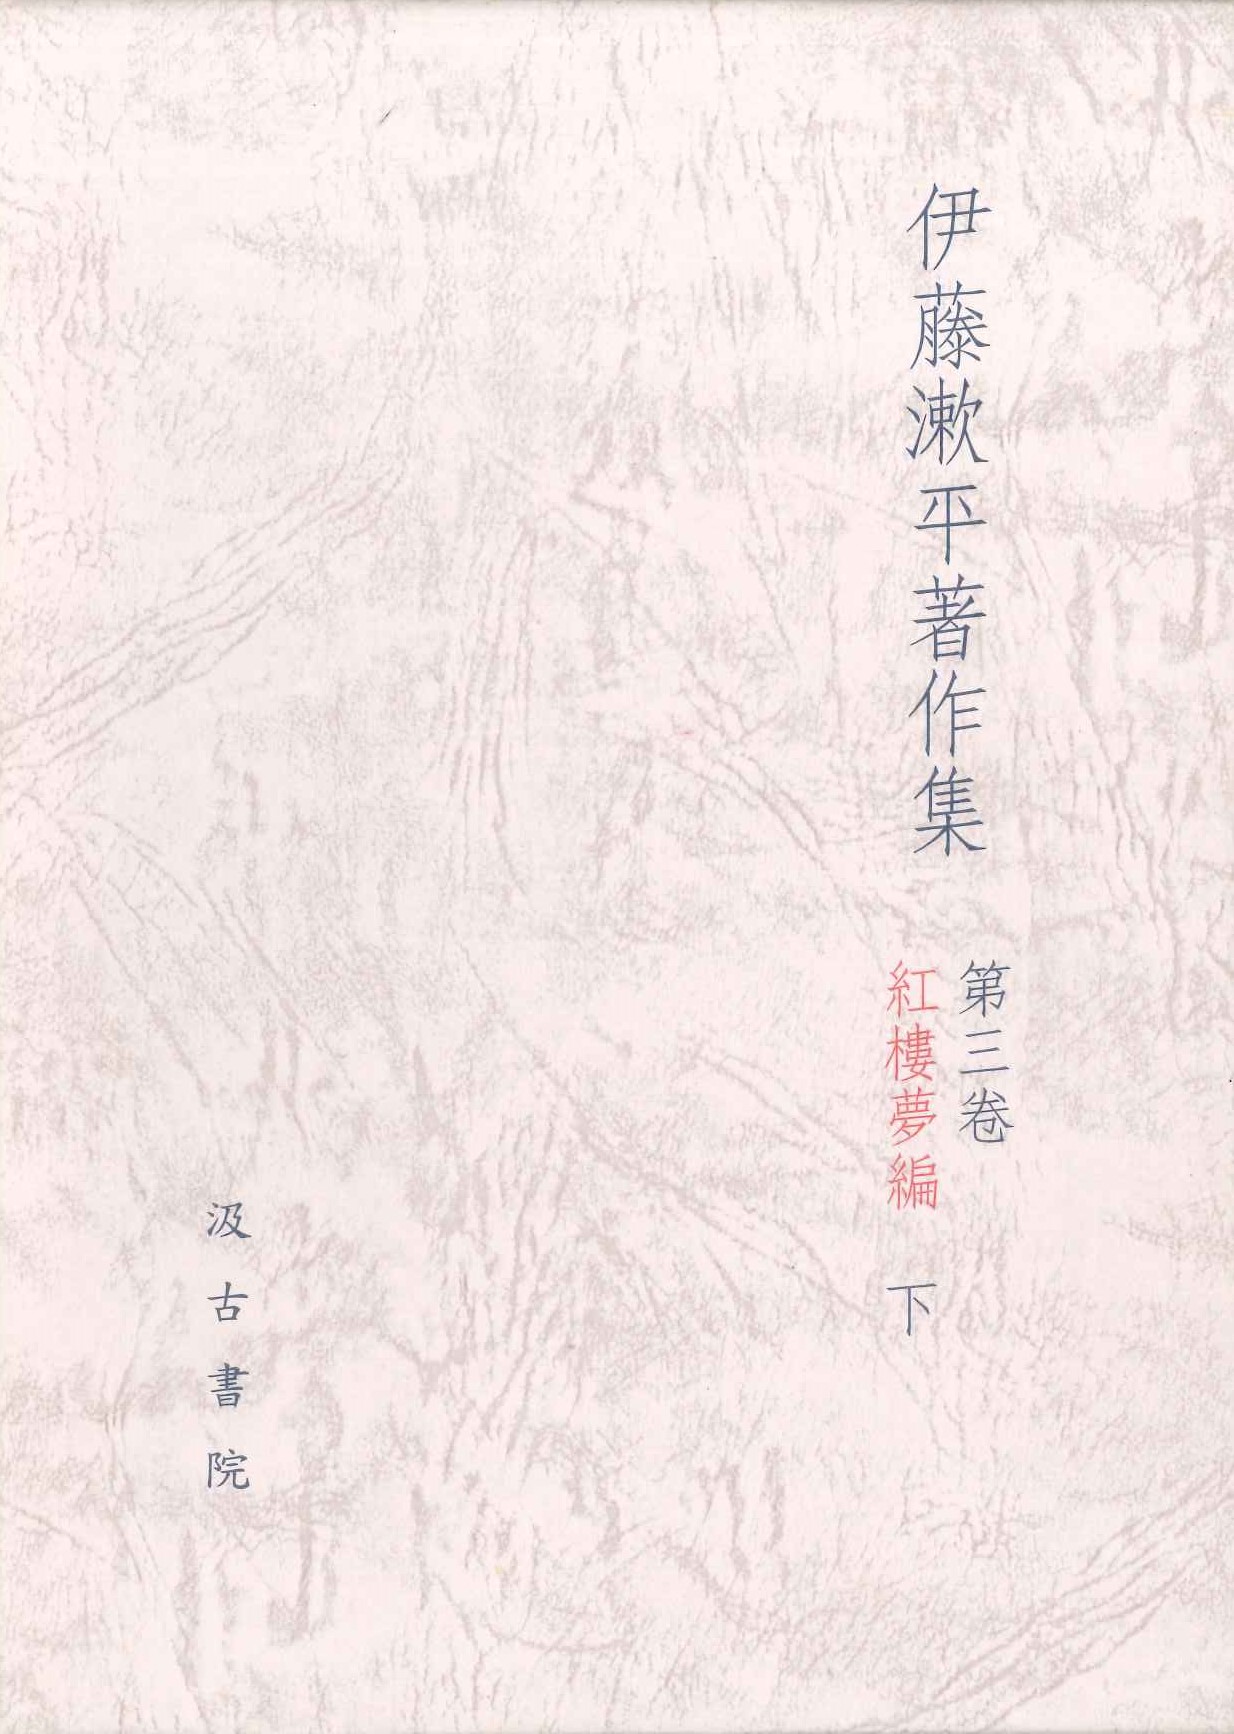 伊藤漱平著作集
第三巻
紅樓夢編 下
汲古書院